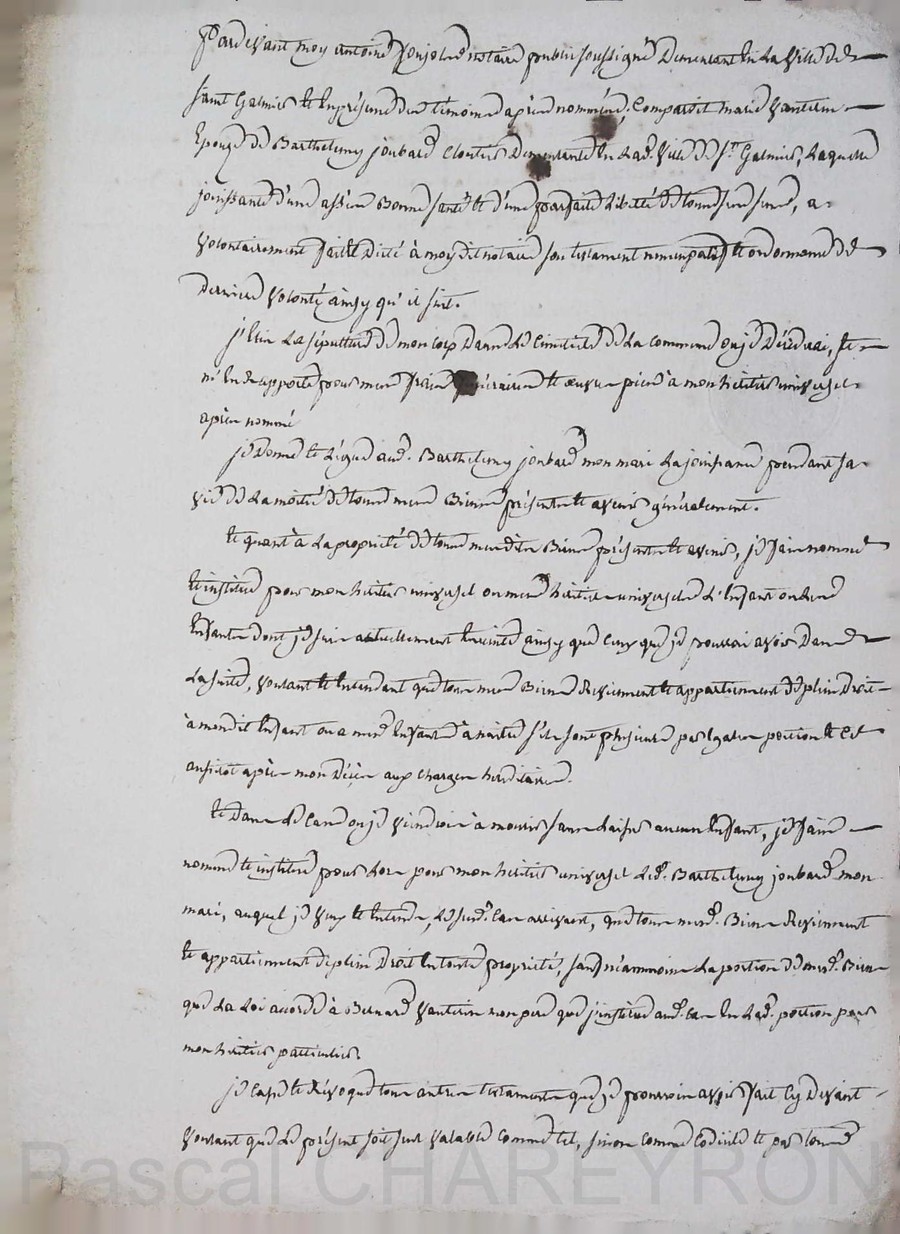 Pardevant moy antoine notaire public soussigné Demeurant En La Ville de
Saint Galmier et En présence des témoins après nommés, Comparoit marie Vanterin
Epouze de Barthelemy joubard Cloutier Demeurante En Lad. Ville de St Galmier, Laquelle
jouissante d'une assés Bonne santé et d'une parfaite Liberté de tous ses sens, a
Volontairement fait et Dicté à moy dit notaire son testament nuncupatif et ordonnance de
Derniere Volonté ainsy qu'il suit.
j'Elis La sépulture de mon corp Dans Le Cimetiere de La commune ou je Décéderai, et
m'En rapporte pour mes frais funéraires et œuvres pies à mon héritier universel
après nommé
je Donne et Légue aud. Barthelemy joubard mon mari La jouissance pendant sa
vie de La moitié de tous mes Biens présents et avenir généralement.
Et quant à La propriété de tous mesdits Biens présents et avenir, je fais nomme
et institue pour mon héritier universel ou mes héritiers universels L'Enfant ou Les
Enfants dont je suis actuellement Enceinte ainsy que Ceux que je pourrai avoir Dans
La suite, Voulant et Entendant que tous mes Biens Reviennent et appartiennent de plein Droit
à mondit Enfant ou a mes Enfants à naitre s'ils sont plusieurs par Egales portion et Ce
aussitôt après mon Décès aux charges héréditaires.
Et Dans Le Cas ou je Viendrois à mourir sans Laisser aucun Enfant, je fais
nomme et institue pour Lors pour mon héritier universel Led. Barthelemy joubard mon
mari, auquel je Veux et Entends, Le susd. Cas arrivant, que tous mesd. Biens Reviennent
et appartiennent de plein Droit En toute propriété, sauf néammoins La portion de mesd. Biens
que La Loi accorde à Bernard Vanterin mon pere que j'institue aud. Cas En Lad. portion pour
mon héritier particulier.
je Casse et Révoque tous autres testaments que je pourrois avoir fait Cy Devant
Voulant que Le présent soit seul Valable comme tel, sinon comme Codicile et par tous
Pascal CHAREYRON